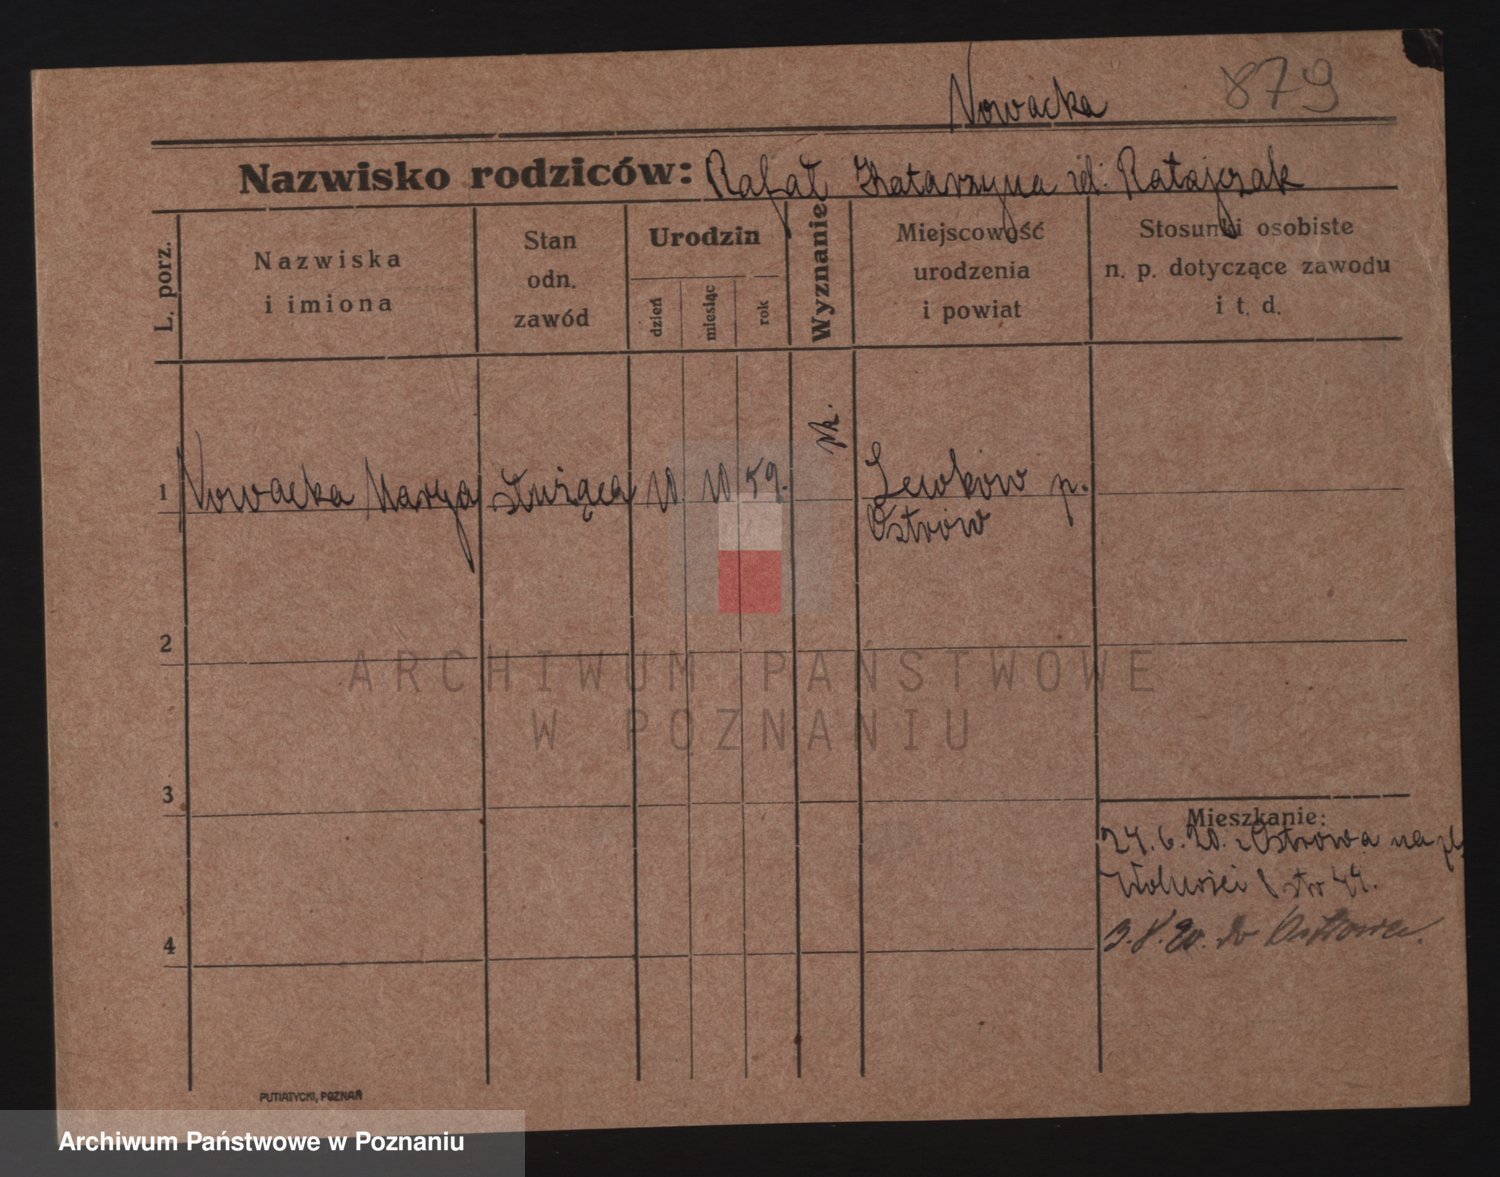 Nowacka 879
Nazwisko rodziców: Rafał Katarzyna zd: Ratajczak
L. porz.
Nazwiska
i imiona
Stan
odn.
zawód
Urodzin
dzień
miesiąc
rok
Wyznanie
Miejscowość
urodzenia
i powiat
Stosunki osobiste
n. p. dotyczące zawodu
i t. d.
1 Nowacka Marya służąca 10 10 59. rk. Lewków p.
Ostrów
2
3
4
Mieszkanie:
24.6.20. z Ostrowa na pl.
Wolności str 44.
3.8.20. do Ostrowa.
PUTIATYCKI, POZNAŃ
ARCHIWUM PAŃSTWOWE
W POZNANIU
Archiwum Państwowe w Poznaniu